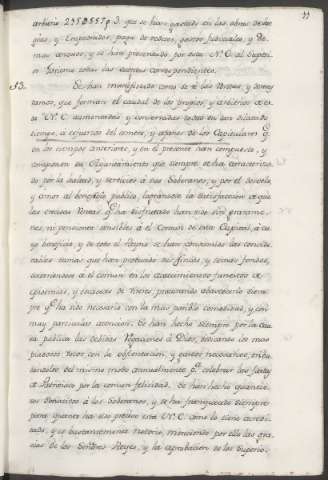 77
arbitrio 295D557 p. 3. que se han gastado en las obras de
y Empedrados, paga de reditos, gastos judiciales, y de
mas anexos, y se han presentado por esta N.C. al Superi-
or Govierno todas las cuentas correspondientes.
53. Se han manifestado como se vé las Rentas, y
que forman el caudal de los propios, y arbitrios de es-
ta N.C. aumentadas y conservadas todas en un dilatado
tiempo, á esfuerzos del conato, y afanes de los Capitulares q.e
en los tiempos anteriores, y en el presente han compuesto, y
componen su Ayuntamiento que siempre se ha caracteriza-
do por la lealtad, y servicios á sus Soberanos, y por el desvelo,
y amor al beneficio publico, lograndose la satisfaccion de que
las crecidas Rentas q.e ha disfrutado han sido sin
nes, ni pensiones sensibles á el Comun de esta Capital, á cu-
yo beneficio, y de todo el Reyno se han convertido las conside-
rables sumas que han producido sus fincas, y demas fondos,
atendiendo á el comun en los acaecimientos funestos de
epidemias, y escaseces de viveres procurando abastecerlo siem-
pre q.e ha sido necesario con la mas posible comodidad, y con
muy particular atencion. Se han hecho siempre por la cau-
sa publica las devidas Rogaciones á Dios, invocando los mas
piadosos votos con la obstentacion, y gastos necesarios,
dosele del mismo modo anualmente p.r celebrar las fiestas
de Patronatos por la comun felicidad. Se han hecho quantio-
sos Donativos á los Soberanos, y se ha franqueado siempre
para quanto ha sido preciso esta N.C. como lo tiene acredi-
tado, y es bastantemente notorio, mereciendo por ello las gra-
cias de los Señores Reyes, y la aprobacion de los Superio-